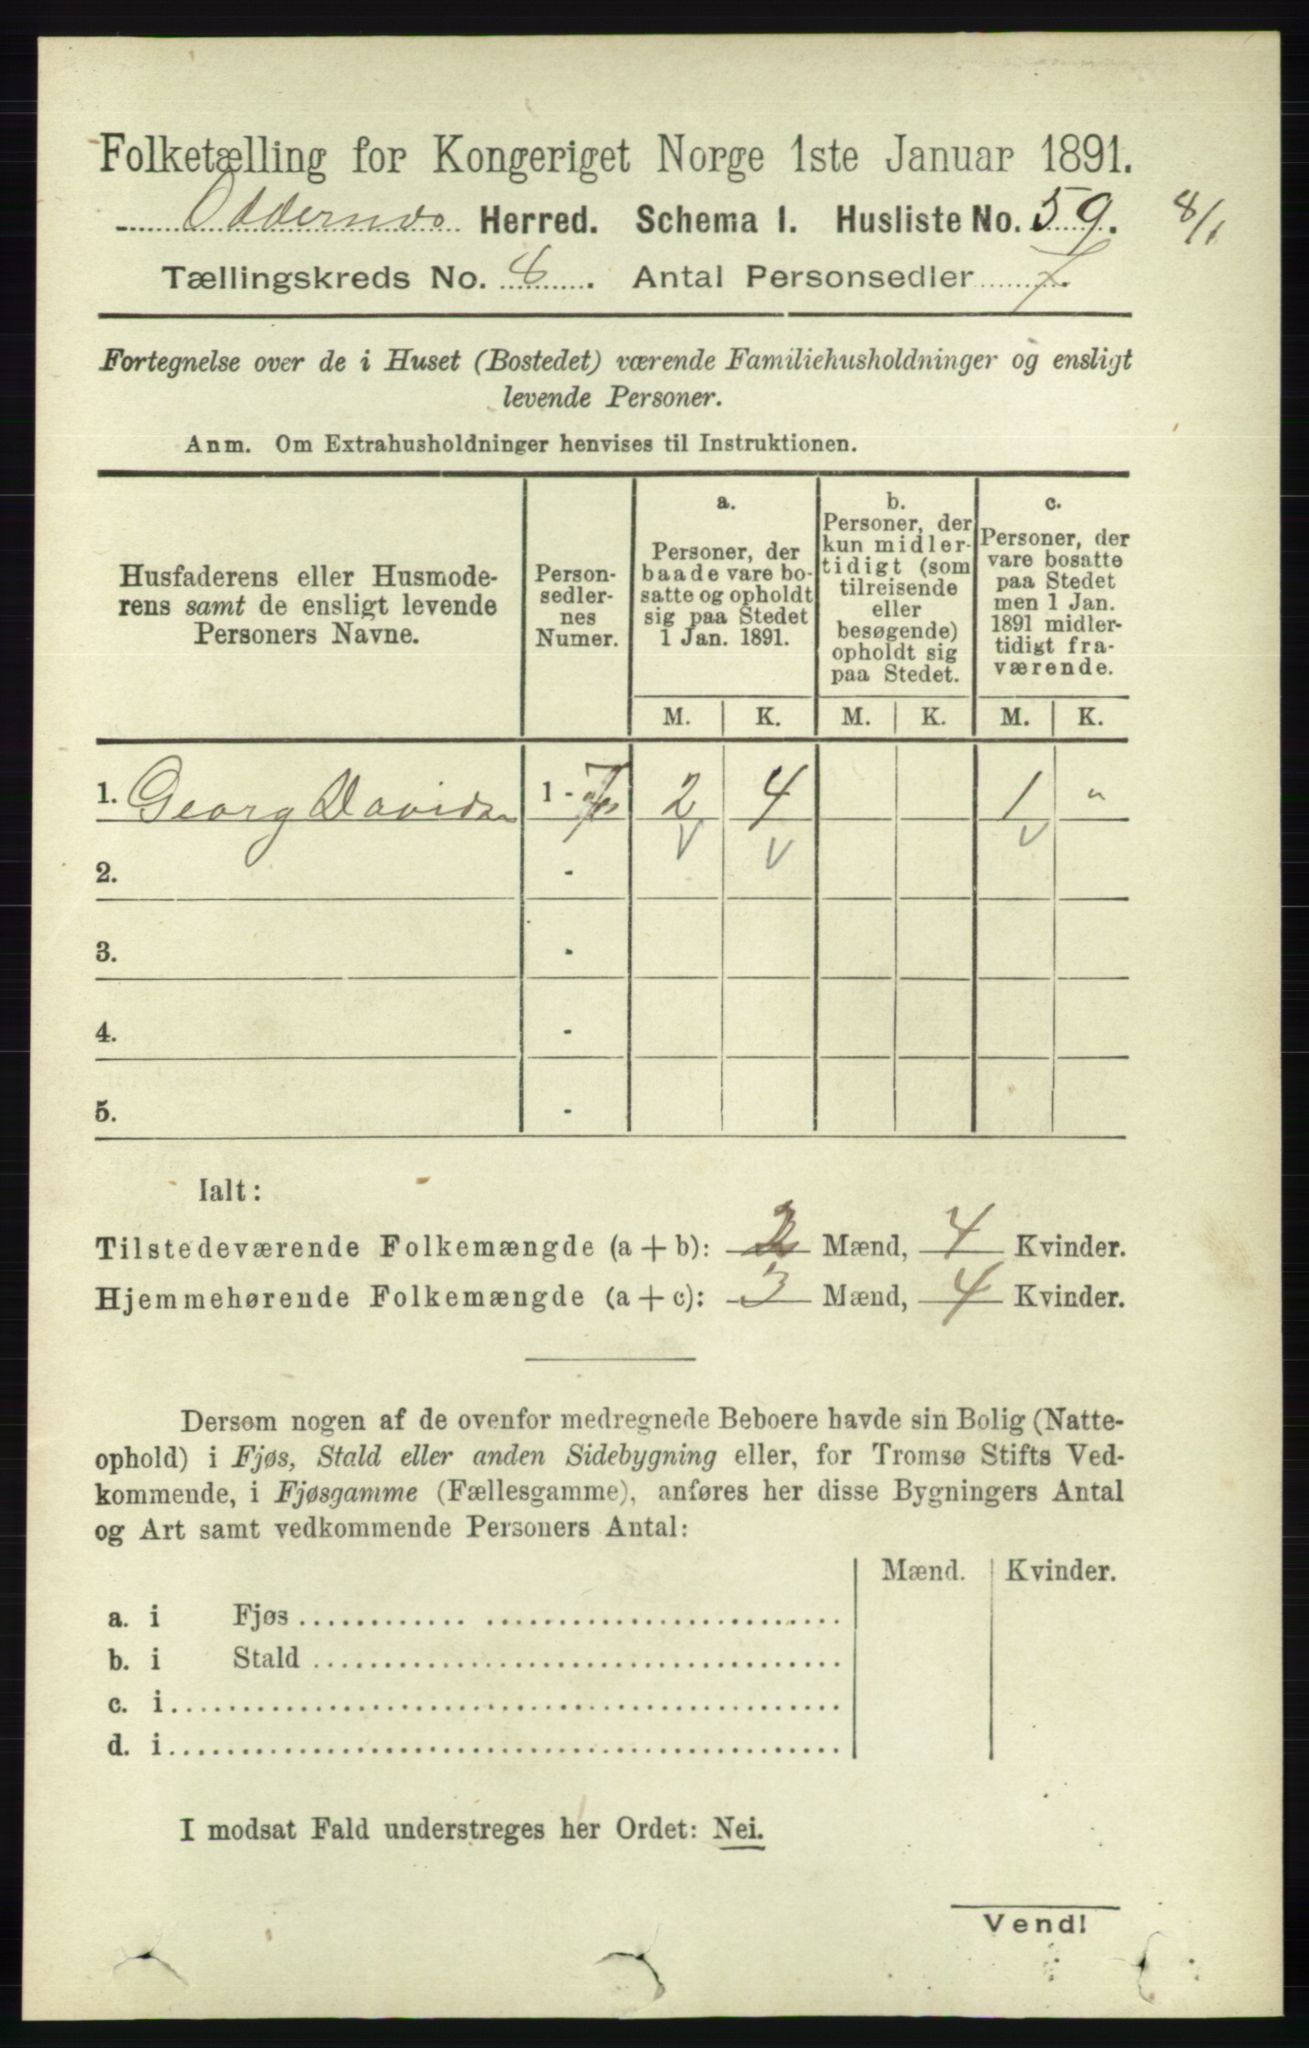 Folketælling for Kongeriget Norge 1ste Januar 1891.
Oddernes Herred. Schema 1. Husliste No. 59. 8/1
Tællingskreds No. 8. Antal Personsedler 7.
Fortegnelse over de i Huset (Bostedet) værende Familiehusholdninger og ensligt
levende Personer.
Anm. Om Extrahusholdninger henvises til Instruktionen.
Husfaderens eller Husmode-
rens samt de ensligt levende
Personers Navne.
Person-
sedler-
nes
Numer.
a.
Personer, der
baade vare bo-
satte og opholdt
sig paa Stedet
1 Jan. 1891.
b.
Personer, der
kun midler-
tidigt (som
tilreisende
eller
besøgende)
opholdt sig
paa Stedet.
c.
Personer, der
vare bosatte
paa Stedet
men 1 Jan.
1891 midler-
tidigt fra-
værende.
M. K. M. K. M. K.
1. Georg Davidsen 1 - 7 2 4 1 "
2. -
3. -
4. -
5. -
Ialt:
Tilstedeværende Folkemængde (a + b): 2 Mænd, 4 Kvinder.
Hjemmehørende Folkemængde (a + c): 3 Mænd, 4 Kvinder.
Dersom nogen af de ovenfor medregnede Beboere havde sin Bolig (Natte-
ophold) i Fjøs, Stald eller anden Sidebygning eller, for Tromsø Stifts Ved-
kommende, i Fjøsgamme (Fællesgamme), anføres her disse Bygningers Antal
og Art samt vedkommende Personers Antal:
Mænd. Kvinder.
a. i Fjøs
b. i Stald
c. i
d. i
I modsat Fald understreges her Ordet: Nei.
Vend!